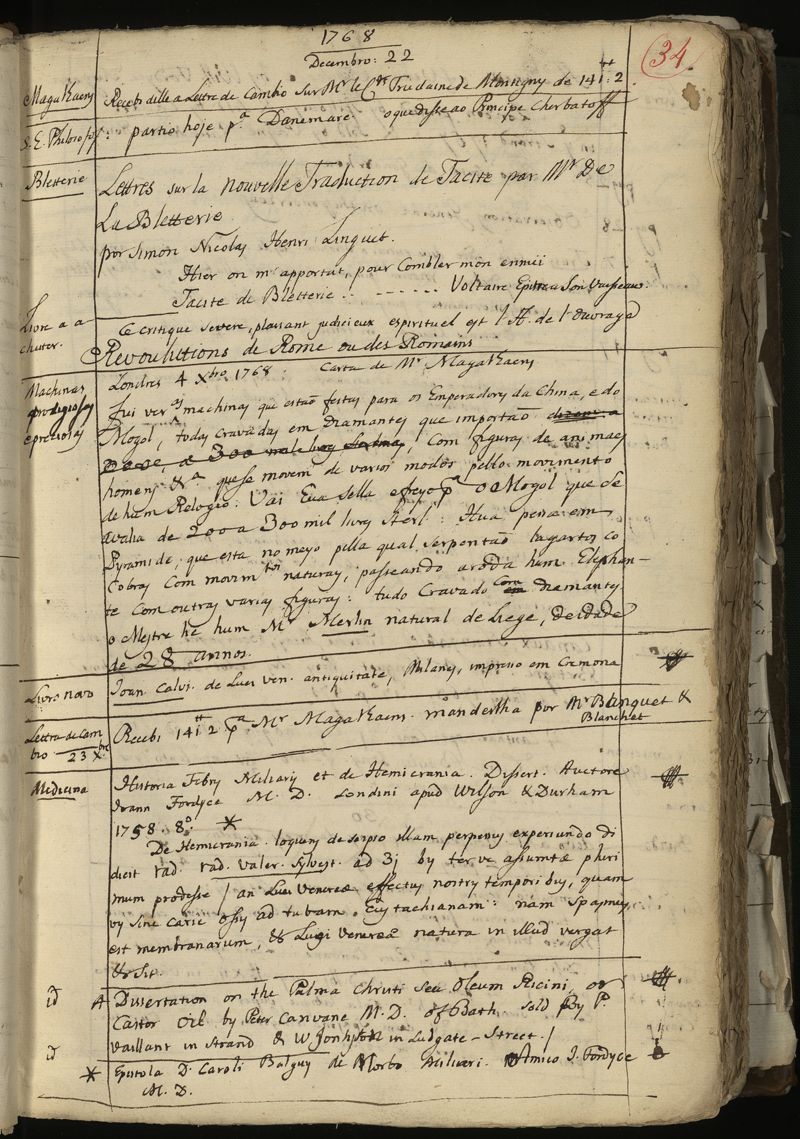 1768
Decembro: 22
34
MagalKaens
Recebi delle a Letra de Cambio sur Mr le Cer Trudaine de Montigny de 141 tt: 2
S. E. Philosophos: partio hoje pa. Danemarc. o que disse ao Principe Cherbatoff
Bletterie
Lettres sur la nouvelle Traduction de Tacite par Mr De
La Bletterie
por Simon Nicolas Henri Linguet.
Hier on m'apportat, pour Combler mon ennüi
Tacite de Bletterie . . - - - - - - Voltaire Epitre a Son Vaisseau.
Livre a a
cheter.
Ce critique severe, plaisant judicieux espirituel est l'A. de l'Ouvrage
Revoulutions de Rome ou des Romains
Machinas
prodigiosas
e preciosas
Londres 4 Xbro 1768: Carta de Mr MagalKaens
fui ver as machinas que estaõ feitas para os Emperadores da China, e do
Mogol, todas cravadas em diamantes que importaõ
com figuras de animaes
homens &a que se movem de varios modos pello movimento
de hum Relogio. Vai hua sella e freyo pa o Mogol que se
avalia de 200 a 300 mil livras Sterl: Hua penna em
Pyramide, que esta no meyo pella qual serpentaõ lagartos co
Cobras Com movimtos naturaes, passeando a roda hum Elephan-
te com outras varias figuras: tudo Cravado Com diamantes.
o Mestre he hum Mr Merlin natural de Liege, de idade
de 28 annos.
Livro novo
Joan Calvi. de Lues Ven. antiquitate, Milanes, impresso em Cremona
Lettra de Cam
bio 23 Xbre
Recebi 141 tt 2 pa. Mr MagalKaens. mandeilha por Mr Blanquet &
Blanchet
Medicina
Historia Febris Miliaris et de Hemicrania. Dissert. Auctore
Ioann Fordyce M. D. Londini apud Wilson & Durham
1758. 8o. *
De Hemicrania loquens de seipso illam perpessus experiundo di
dicit rad. rad. valer. Sylvest. ad 3j bis terve assumtæ pluri
mum prodesse / an Lues Venereæ effectus nostris temporibus, quam
vis sine carie ossis ad tubam Eustachianam: nam Spasmus,
est membranarum, & Luis Venereæ natura in illud vergat
& sit.
id A Dissertation on the Palma Christi seu Oleum Ricini, or
Castor Oil by Peter Canvane M. D. of Bath sold By P.
Vaillant in Strand & W Jonhston in Ludgate-Street. /
id
* Epistola D. Caroli Balguy de Morbo Miliari. Amico J. Fordyce
M. D.